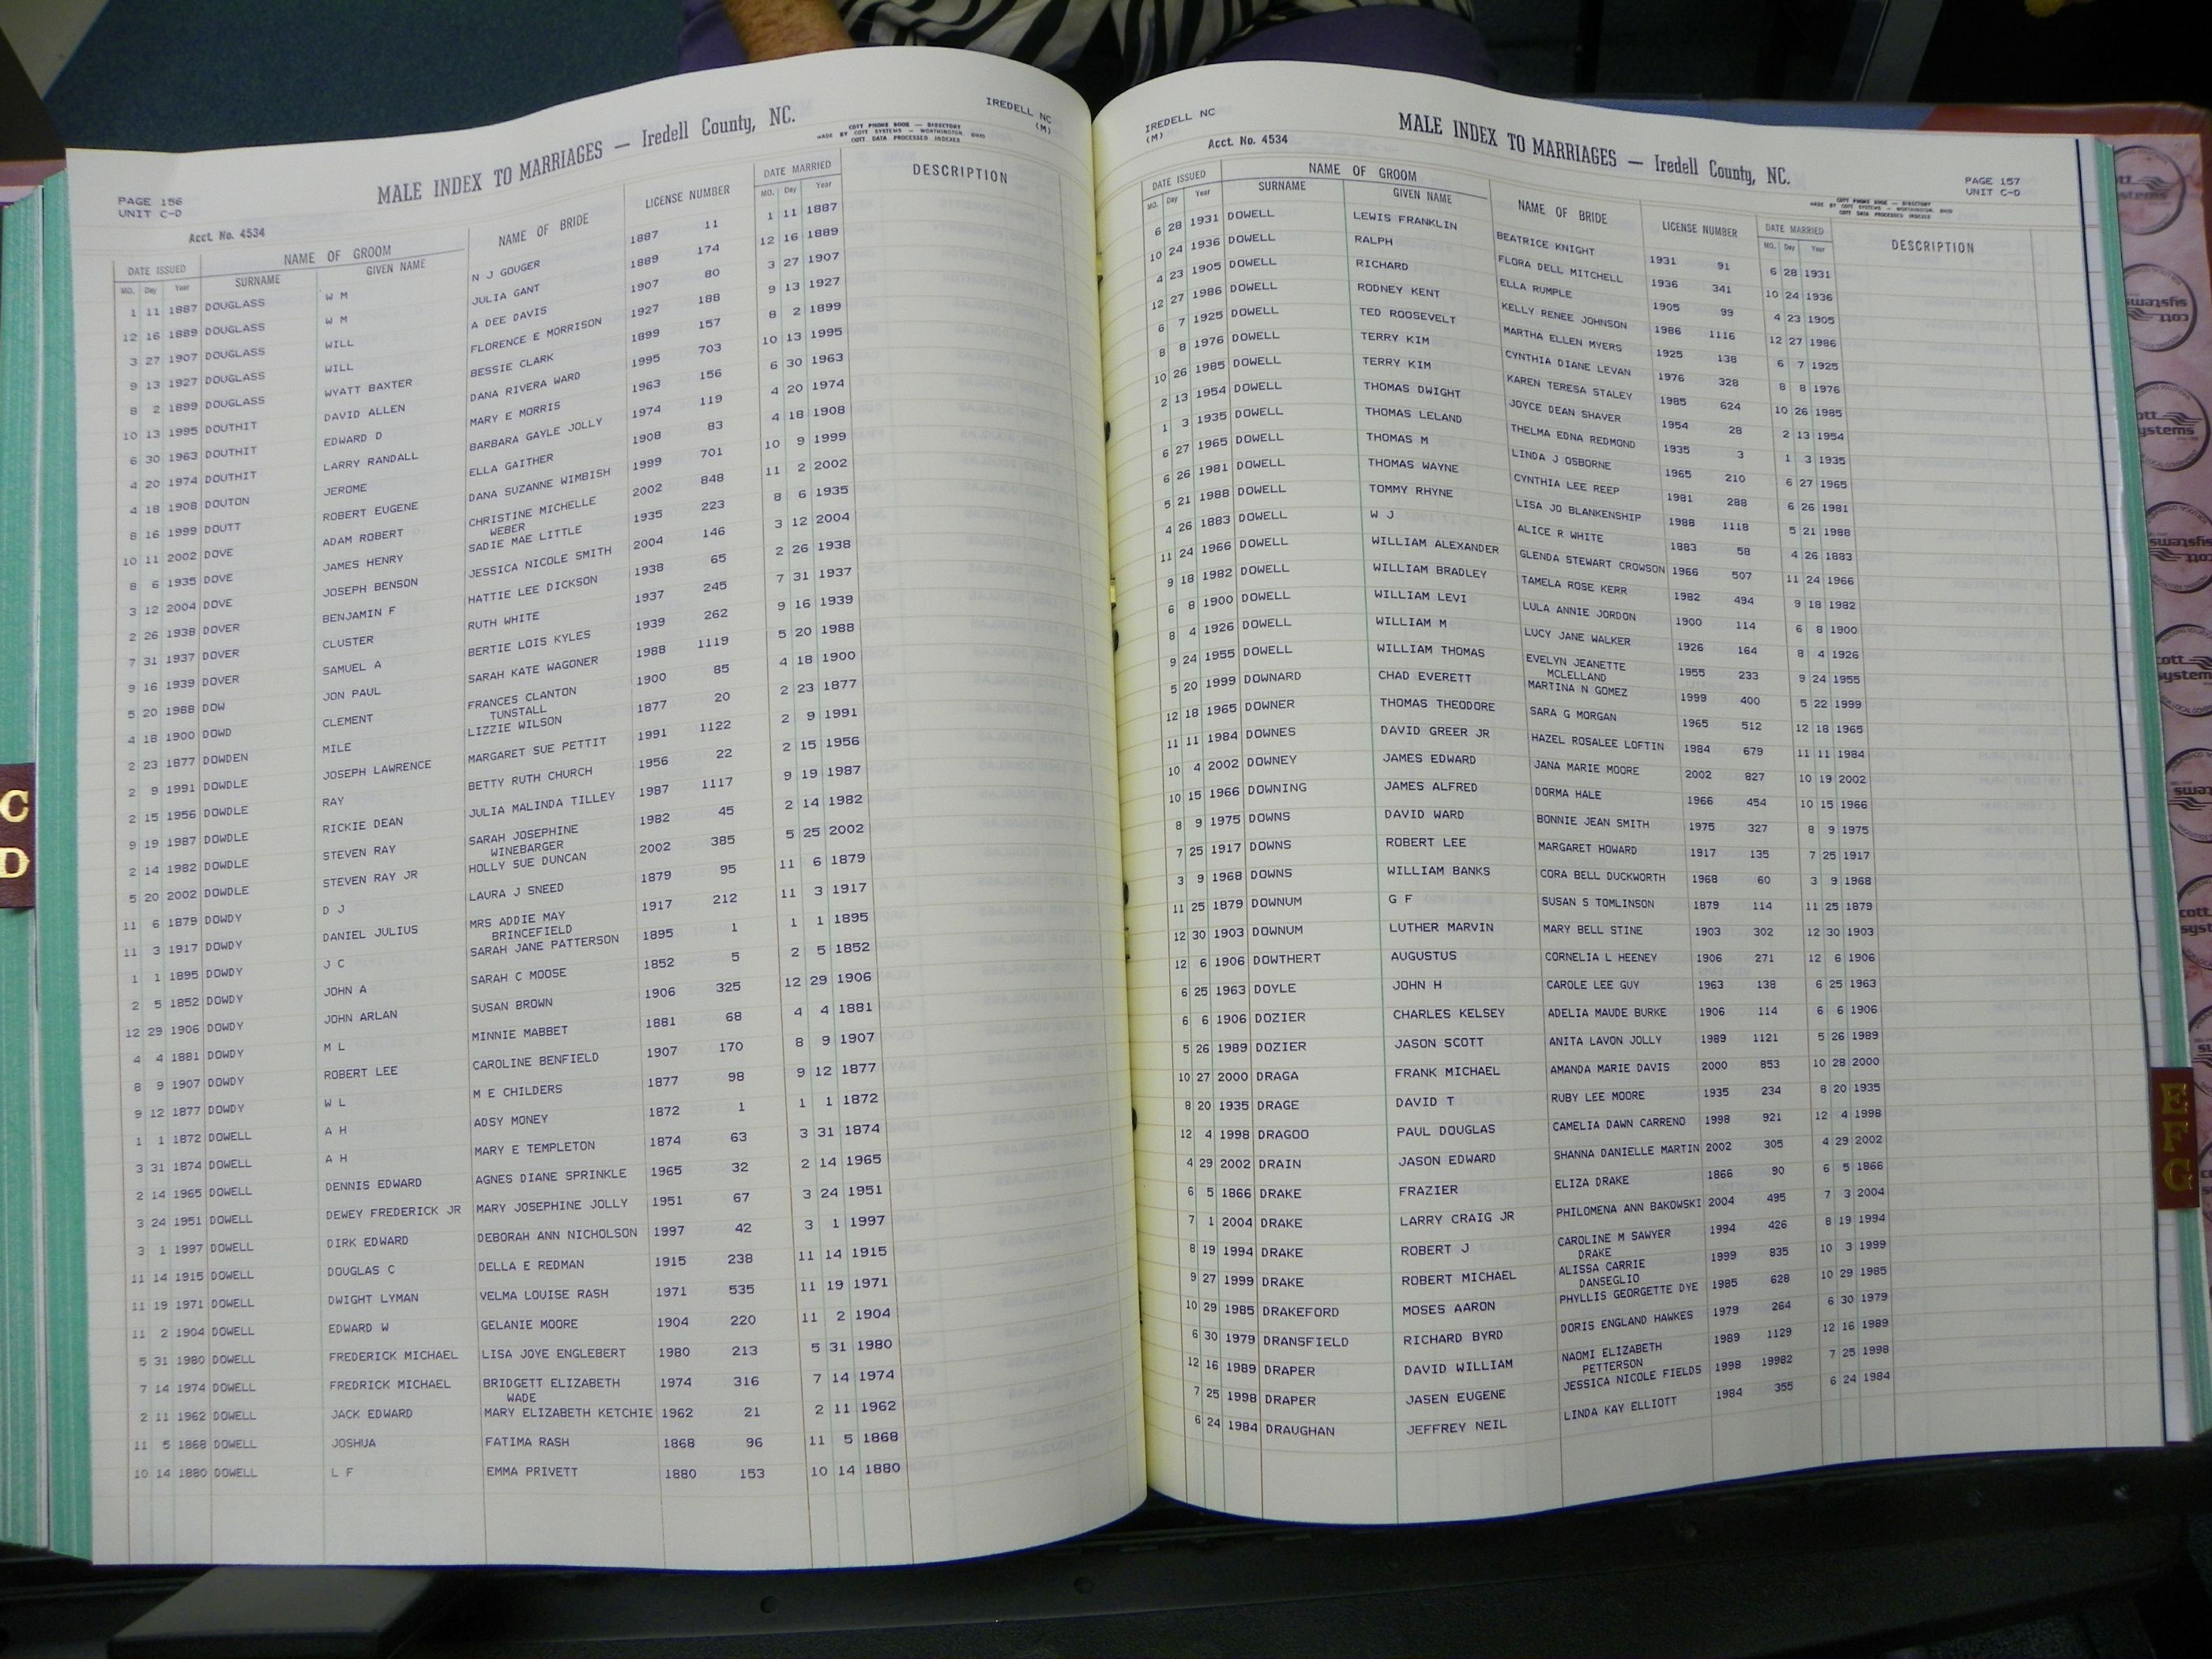 IREDELL NC
(M)
MALE INDEX TO MARRIAGES — Iredell County, NC.
COTT PHONE BOOK — DIRECTORY
MADE BY COTT SYSTEMS — WORTHINGTON, OHIO
COTT DATA PROCESSED INDEXES
PAGE 156
UNIT C-D
Acct. No. 4534
DATE ISSUED NAME OF GROOM NAME OF BRIDE LICENSE NUMBER DATE MARRIED DESCRIPTION
MO. Day Year SURNAME GIVEN NAME MO. Day Year
1 11 1887 DOUGLASS W M N J GOUGER 1887 11 1 11 1887
12 16 1889 DOUGLASS W M JULIA GANT 1889 174 12 16 1889
3 27 1907 DOUGLASS WILL A DEE DAVIS 1907 80 3 27 1907
9 13 1927 DOUGLASS WILL FLORENCE E MORRISON 1927 188 9 13 1927
8 2 1899 DOUGLASS WYATT BAXTER BESSIE CLARK 1899 157 8 2 1899
10 13 1995 DOUTHIT DAVID ALLEN DANA RIVERA WARD 1995 703 10 13 1995
6 30 1963 DOUTHIT EDWARD D MARY E MORRIS 1963 156 6 30 1963
4 20 1974 DOUTHIT LARRY RANDALL BARBARA GAYLE JOLLY 1974 119 4 20 1974
4 18 1908 DOUTON JEROME ELLA GAITHER 1908 83 4 18 1908
8 16 1999 DOUTT ROBERT EUGENE DANA SUZANNE WIMBISH 1999 701 10 9 1999
10 11 2002 DOVE ADAM ROBERT CHRISTINE MICHELLE 2002 848 11 2 2002
WEBER
8 6 1935 DOVE JAMES HENRY SADIE MAE LITTLE 1935 223 8 6 1935
3 12 2004 DOVE JOSEPH BENSON JESSICA NICOLE SMITH 2004 146 3 12 2004
2 26 1938 DOVER BENJAMIN F HATTIE LEE DICKSON 1938 65 2 26 1938
7 31 1937 DOVER CLUSTER RUTH WHITE 1937 245 7 31 1937
9 16 1939 DOVER SAMUEL A BERTIE LOIS KYLES 1939 262 9 16 1939
5 20 1988 DOW JON PAUL SARAH KATE WAGONER 1988 1119 5 20 1988
4 18 1900 DOWD CLEMENT FRANCES CLANTON 1900 85 4 18 1900
TUNSTALL
2 23 1877 DOWDEN MILE LIZZIE WILSON 1877 20 2 23 1877
2 9 1991 DOWDLE JOSEPH LAWRENCE MARGARET SUE PETTIT 1991 1122 2 9 1991
2 15 1956 DOWDLE RAY BETTY RUTH CHURCH 1956 22 2 15 1956
9 19 1987 DOWDLE RICKIE DEAN JULIA MALINDA TILLEY 1987 1117 9 19 1987
2 14 1982 DOWDLE STEVEN RAY SARAH JOSEPHINE 1982 45 2 14 1982
WINEBARGER
5 20 2002 DOWDLE STEVEN RAY JR HOLLY SUE DUNCAN 2002 385 5 25 2002
11 6 1879 DOWDY D J LAURA J SNEED 1879 95 11 6 1879
11 3 1917 DOWDY DANIEL JULIUS MRS ADDIE MAY 1917 212 11 3 1917
BRINCEFIELD
1 1 1895 DOWDY J C SARAH JANE PATTERSON 1895 1 1 1 1895
2 5 1852 DOWDY JOHN A SARAH C MOOSE 1852 5 2 5 1852
12 29 1906 DOWDY JOHN ARLAN SUSAN BROWN 1906 325 12 29 1906
4 4 1881 DOWDY M L MINNIE MABBET 1881 68 4 4 1881
8 9 1907 DOWDY ROBERT LEE CAROLINE BENFIELD 1907 170 8 9 1907
9 12 1877 DOWDY W L M E CHILDERS 1877 98 9 12 1877
1 1 1872 DOWELL A H ADSY MONEY 1872 1 1 1 1872
3 31 1874 DOWELL A H MARY E TEMPLETON 1874 63 3 31 1874
2 14 1965 DOWELL DENNIS EDWARD AGNES DIANE SPRINKLE 1965 32 2 14 1965
3 24 1951 DOWELL DEWEY FREDERICK JR MARY JOSEPHINE JOLLY 1951 67 3 24 1951
3 1 1997 DOWELL DIRK EDWARD DEBORAH ANN NICHOLSON 1997 42 3 1 1997
11 14 1915 DOWELL DOUGLAS C DELLA E REDMAN 1915 238 11 14 1915
11 19 1971 DOWELL DWIGHT LYMAN VELMA LOUISE RASH 1971 535 11 19 1971
11 2 1904 DOWELL EDWARD W GELANIE MOORE 1904 220 11 2 1904
5 31 1980 DOWELL FREDERICK MICHAEL LISA JOYE ENGLEBERT 1980 213 5 31 1980
7 14 1974 DOWELL FREDRICK MICHAEL BRIDGETT ELIZABETH 1974 316 7 14 1974
WADE
2 11 1962 DOWELL JACK EDWARD MARY ELIZABETH KETCHIE 1962 21 2 11 1962
11 5 1868 DOWELL JOSHUA FATIMA RASH 1868 96 11 5 1868
10 14 1880 DOWELL L F EMMA PRIVETT 1880 153 10 14 1880
C
D
IREDELL NC
(M)
Acct. No. 4534
MALE INDEX TO MARRIAGES — Iredell County, NC.
COTT PHONE BOOK — DIRECTORY
MADE BY COTT SYSTEMS — WORTHINGTON, OHIO
COTT DATA PROCESSED INDEXES
PAGE 157
UNIT C-D
DATE ISSUED NAME OF GROOM NAME OF BRIDE LICENSE NUMBER DATE MARRIED DESCRIPTION
MO. Day Year SURNAME GIVEN NAME MO. Day Year
6 28 1931 DOWELL LEWIS FRANKLIN BEATRICE KNIGHT 1931 91 6 28 1931
10 24 1936 DOWELL RALPH FLORA DELL MITCHELL 1936 341 10 24 1936
4 23 1905 DOWELL RICHARD ELLA RUMPLE 1905 99 4 23 1905
12 27 1986 DOWELL RODNEY KENT KELLY RENEE JOHNSON 1986 1116 12 27 1986
6 7 1925 DOWELL TED ROOSEVELT MARTHA ELLEN MYERS 1925 138 6 7 1925
8 8 1976 DOWELL TERRY KIM CYNTHIA DIANE LEVAN 1976 328 8 8 1976
10 26 1985 DOWELL TERRY KIM KAREN TERESA STALEY 1985 624 10 26 1985
2 13 1954 DOWELL THOMAS DWIGHT JOYCE DEAN SHAVER 1954 28 2 13 1954
1 3 1935 DOWELL THOMAS LELAND THELMA EDNA REDMOND 1935 3 1 3 1935
6 27 1965 DOWELL THOMAS M LINDA J OSBORNE 1965 210 6 27 1965
6 26 1981 DOWELL THOMAS WAYNE CYNTHIA LEE REEP 1981 288 6 26 1981
5 21 1988 DOWELL TOMMY RHYNE LISA JO BLANKENSHIP 1988 1118 5 21 1988
4 26 1883 DOWELL W J ALICE R WHITE 1883 58 4 26 1883
11 24 1966 DOWELL WILLIAM ALEXANDER GLENDA STEWART CROWSON 1966 507 11 24 1966
9 18 1982 DOWELL WILLIAM BRADLEY TAMELA ROSE KERR 1982 494 9 18 1982
6 8 1900 DOWELL WILLIAM LEVI LULA ANNIE JORDON 1900 114 6 8 1900
8 4 1926 DOWELL WILLIAM M LUCY JANE WALKER 1926 164 8 4 1926
9 24 1955 DOWELL WILLIAM THOMAS EVELYN JEANETTE 1955 233 9 24 1955
MCLELLAND
5 20 1999 DOWNARD CHAD EVERETT MARTINA N GOMEZ 1999 400 5 22 1999
12 18 1965 DOWNER THOMAS THEODORE SARA G MORGAN 1965 512 12 18 1965
11 11 1984 DOWNES DAVID GREER JR HAZEL ROSALEE LOFTIN 1984 679 11 11 1984
10 4 2002 DOWNEY JAMES EDWARD JANA MARIE MOORE 2002 827 10 19 2002
10 15 1966 DOWNING JAMES ALFRED DORMA HALE 1966 454 10 15 1966
8 9 1975 DOWNS DAVID WARD BONNIE JEAN SMITH 1975 327 8 9 1975
7 25 1917 DOWNS ROBERT LEE MARGARET HOWARD 1917 135 7 25 1917
3 9 1968 DOWNS WILLIAM BANKS CORA BELL DUCKWORTH 1968 60 3 9 1968
11 25 1879 DOWNUM G F SUSAN S TOMLINSON 1879 114 11 25 1879
12 30 1903 DOWNUM LUTHER MARVIN MARY BELL STINE 1903 302 12 30 1903
12 6 1906 DOWTHERT AUGUSTUS CORNELIA L HEENEY 1906 271 12 6 1906
6 25 1963 DOYLE JOHN H CAROLE LEE GUY 1963 138 6 25 1963
6 6 1906 DOZIER CHARLES KELSEY ADELIA MAUDE BURKE 1906 114 6 6 1906
5 26 1989 DOZIER JASON SCOTT ANITA LAVON JOLLY 1989 1121 5 26 1989
10 27 2000 DRAGA FRANK MICHAEL AMANDA MARIE DAVIS 2000 853 10 28 2000
8 20 1935 DRAGE DAVID T RUBY LEE MOORE 1935 234 8 20 1935
12 4 1998 DRAGOO PAUL DOUGLAS CAMELIA DAWN CARRENO 1998 921 12 4 1998
4 29 2002 DRAIN JASON EDWARD SHANNA DANIELLE MARTIN 2002 305 4 29 2002
6 5 1866 DRAKE FRAZIER ELIZA DRAKE 1866 90 6 5 1866
7 1 2004 DRAKE LARRY CRAIG JR PHILOMENA ANN BAKOWSKI 2004 495 7 3 2004
8 19 1994 DRAKE ROBERT J CAROLINE M SAWYER 1994 426 8 19 1994
DRAKE
9 27 1999 DRAKE ROBERT MICHAEL ALISSA CARRIE 1999 835 10 3 1999
DANSEGLIO
10 29 1985 DRAKEFORD MOSES AARON PHYLLIS GEORGETTE DYE 1985 628 10 29 1985
6 30 1979 DRANSFIELD RICHARD BYRD DORIS ENGLAND HAWKES 1979 264 6 30 1979
12 16 1989 DRAPER DAVID WILLIAM NAOMI ELIZABETH 1989 1129 12 16 1989
PETTERSON
7 25 1998 DRAPER JASEN EUGENE JESSICA NICOLE FIELDS 1998 19982 7 25 1998
6 24 1984 DRAUGHAN JEFFREY NEIL LINDA KAY ELLIOTT 1984 355 6 24 1984
E
F
G
cott
systems